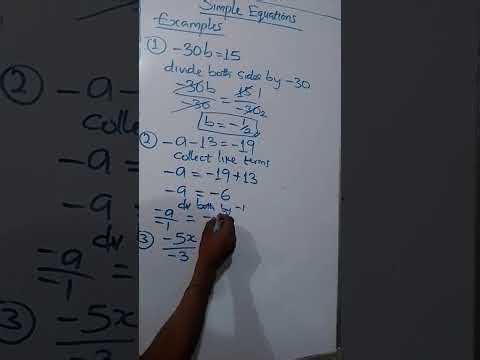 Simple Equations
Examples
① -30b=15
divide both sides by -30
-30b/-30 = 15 1/-30 2
b = -1/2
② -a-13=-19
collect like terms
-a = -19+13
-a = -6
div both by -1
-a/-1 = -
③ -5x/-3
② -a-
collect
-a =
-a =
-a/-1 =
③ -5x/-3